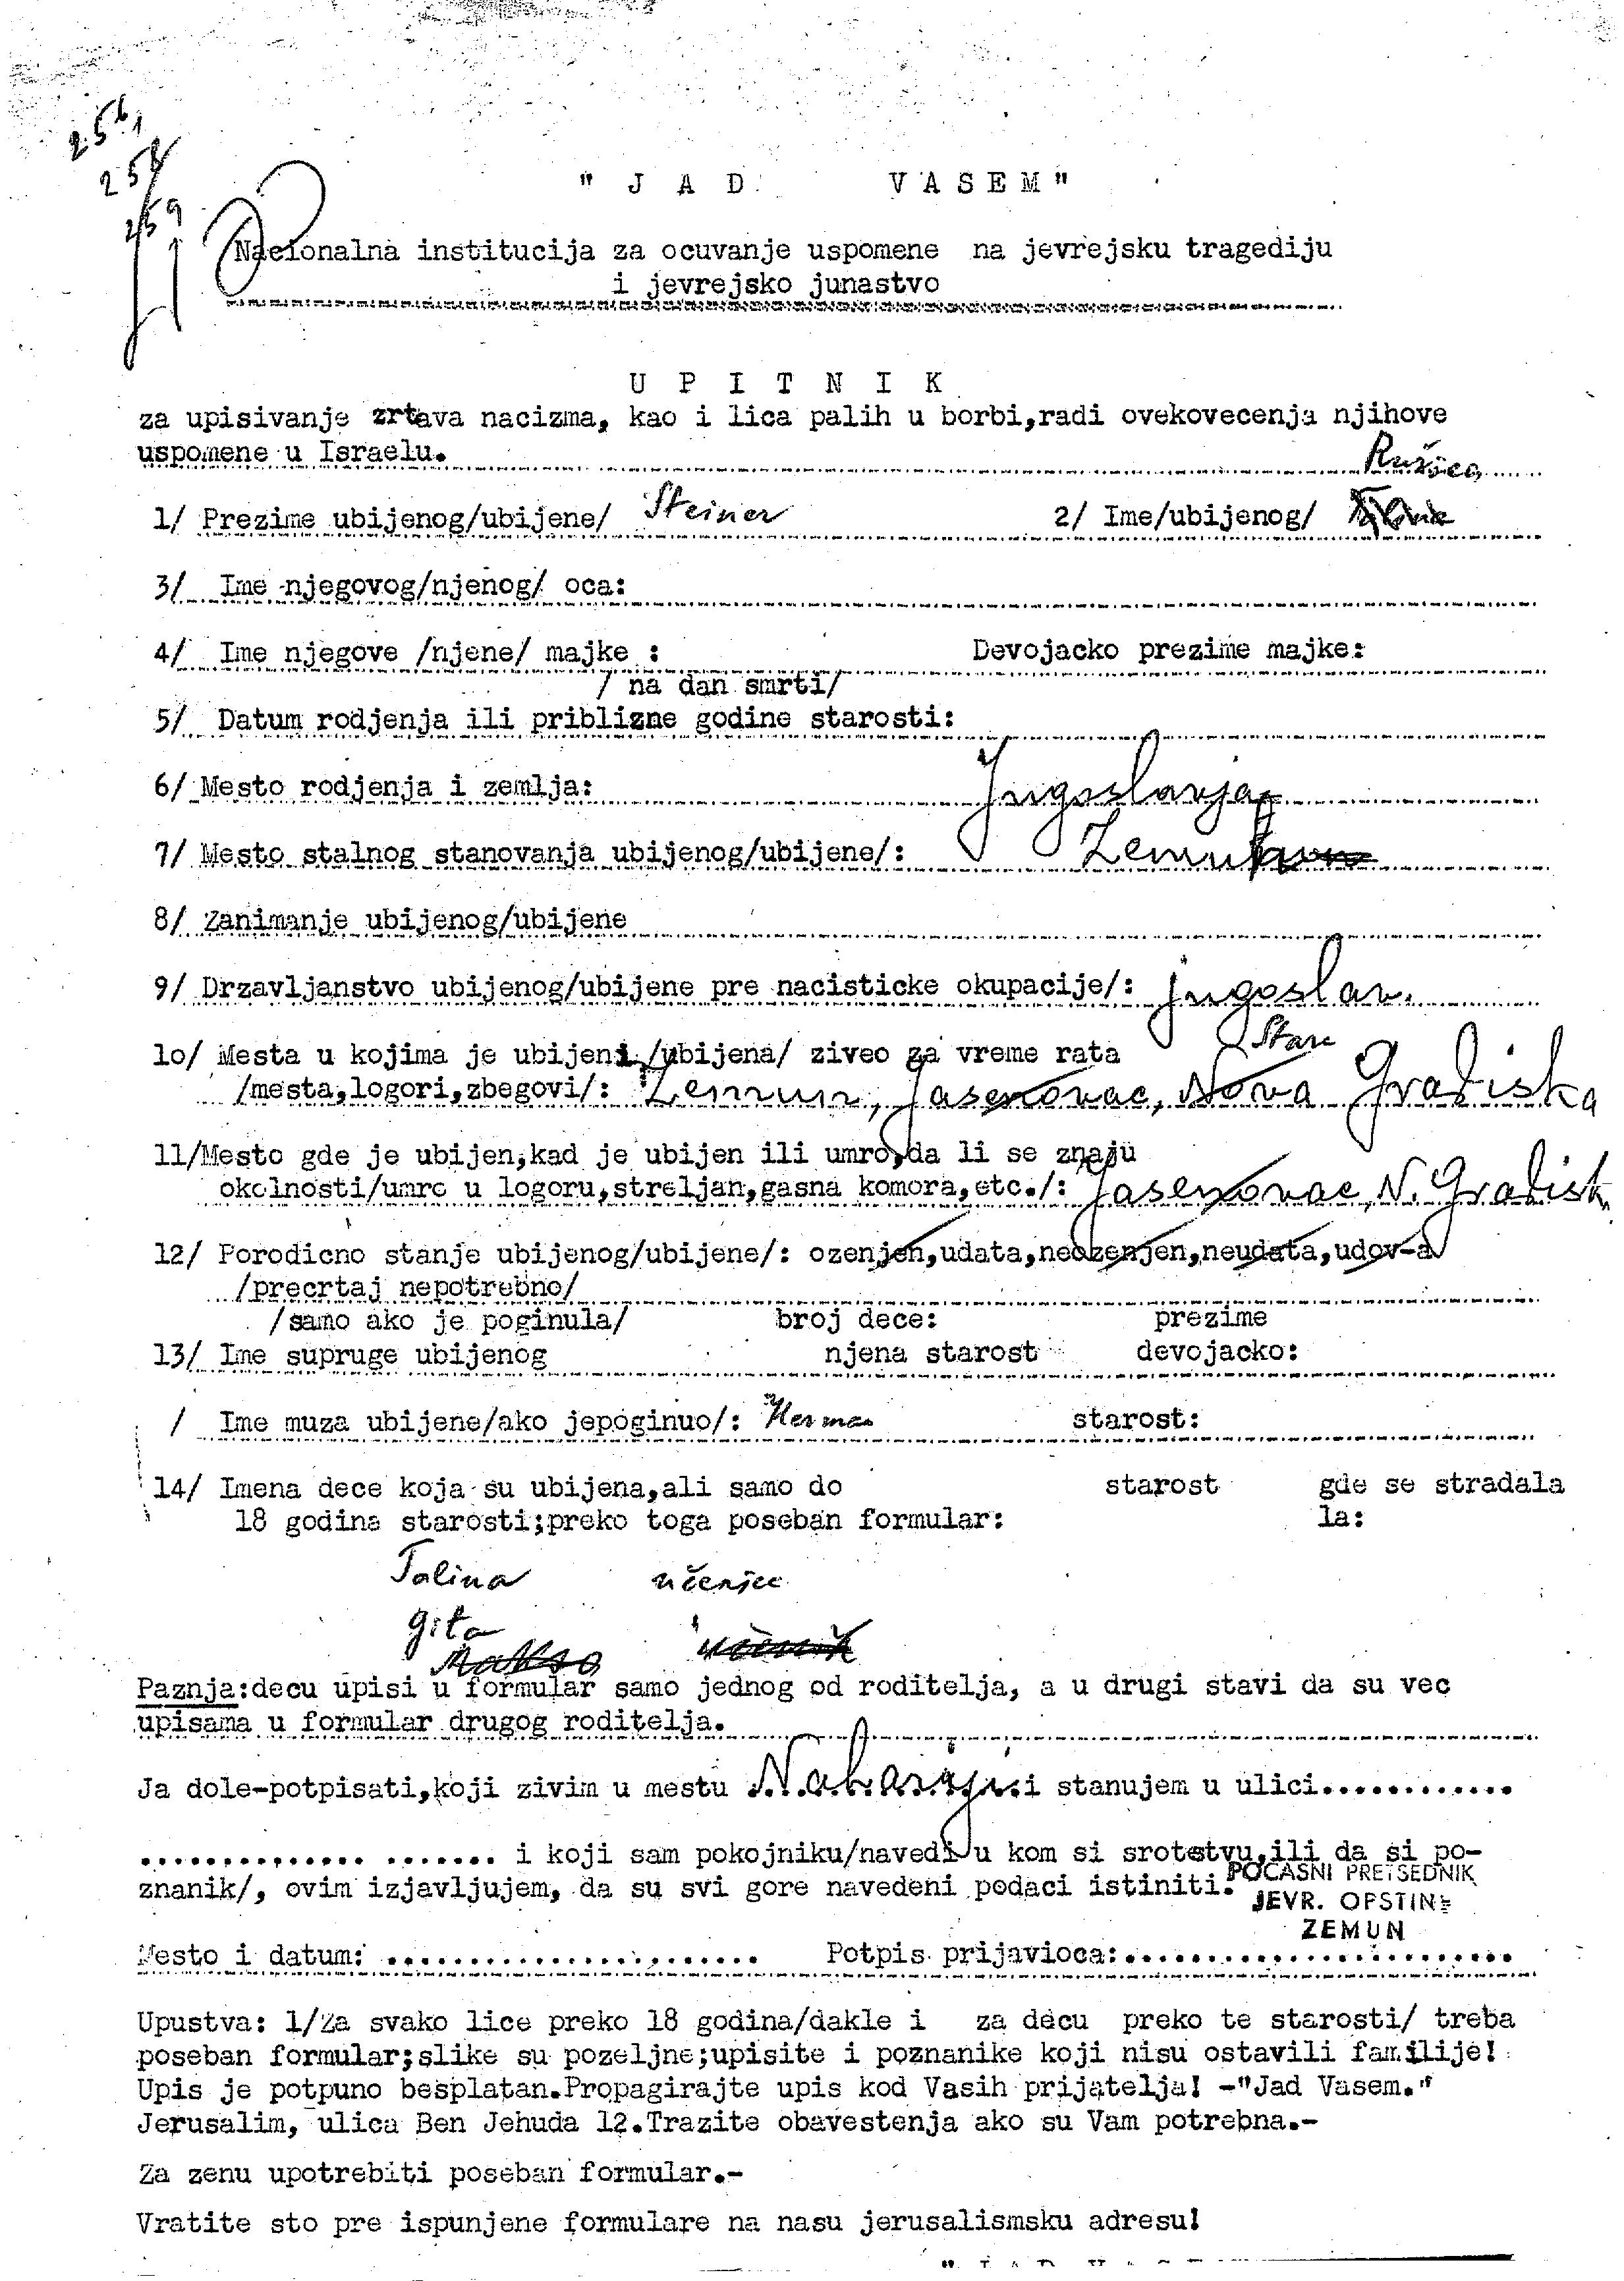 256,
257
259
"JAD VASEM"
Nacionalna institucija za ocuvanje uspomene na jevrejsku tragediju
i jevrejsko junastvo
UPITNIK
za upisivanje zrtava nacizma, kao i lica palih u borbi,radi ovekovecenja njihove
uspomene u Israelu.
Ružica
1/ Prezime ubijenog/ubijene/ Steiner 2/ Ime/ubijenog/
3/ Ime njegovog/njenog/ oca:
4/ Ime njegove /njene/ majke : Devojacko prezime majke:
/ na dan smrti/
5/ Datum rodjenja ili priblizne godine starosti:
6/ Mesto rodjenja i zemlja: Jugoslavija
7/ Mesto stalnog stanovanja ubijenog/ubijene/: Zemun
8/ Zanimanje ubijenog/ubijene
9/ Drzavljanstvo ubijenog/ubijene pre nacisticke okupacije/: jugoslav.
Stara
lo/ Mesta u kojima je ubijeni /ubijena/ ziveo za vreme rata
/mesta,logori,zbegovi/: Zemun, Jasenovac, Nova Gradiska
11/Mesto gde je ubijen,kad je ubijen ili umro,da li se znaju
okolnosti/umro u logoru,streljan,gasna komora,etc./: Jasenovac, N. Gradisk
12/ Porodicno stanje ubijenog/ubijene/: ozenjen,udata,neozenjen,neudata,udov-a
/precrtaj nepotrebno/
/samo ako je poginula/ broj dece: prezime
13/ Ime supruge ubijenog njena starost devojacko:
/ Ime muza ubijene/ako jepoginuo/: Herman starost:
14/ Imena dece koja su ubijena,ali samo do starost gde se stradala
18 godina starosti;preko toga poseban formular: la:
Talina učenice
Gita
Makso učenik
Paznja:decu upisi u formular samo jednog od roditelja, a u drugi stavi da su vec
upisama u formular drugog roditelja.
Ja dole-potpisati,koji zivim u mestu Naharija i stanujem u ulici............
.............. ....... i koji sam pokojniku/navedi u kom si srotstvu,ili da si po-
znanik/, ovim izjavljujem, da su svi gore navedeni podaci istiniti.
POČASNI PRETSEDNIK
JEVR. OPSTINE
ZEMUN
Mesto i datum: ....................... Potpis prijavioca:........................
Upustva: 1/Za svako lice preko 18 godina/dakle i za decu preko te starosti/ treba
poseban formular;slike su pozeljne;upisite i poznanike koji nisu ostavili familije!
Upis je potpuno besplatan.Propagirajte upis kod Vasih prijatelja! -"Jad Vasem."
Jerusalim, ulica Ben Jehuda 12.Trazite obavestenja ako su Vam potrebna.-
Za zenu upotrebiti poseban formular.-
Vratite sto pre ispunjene formulare na nasu jerusalismsku adresu!